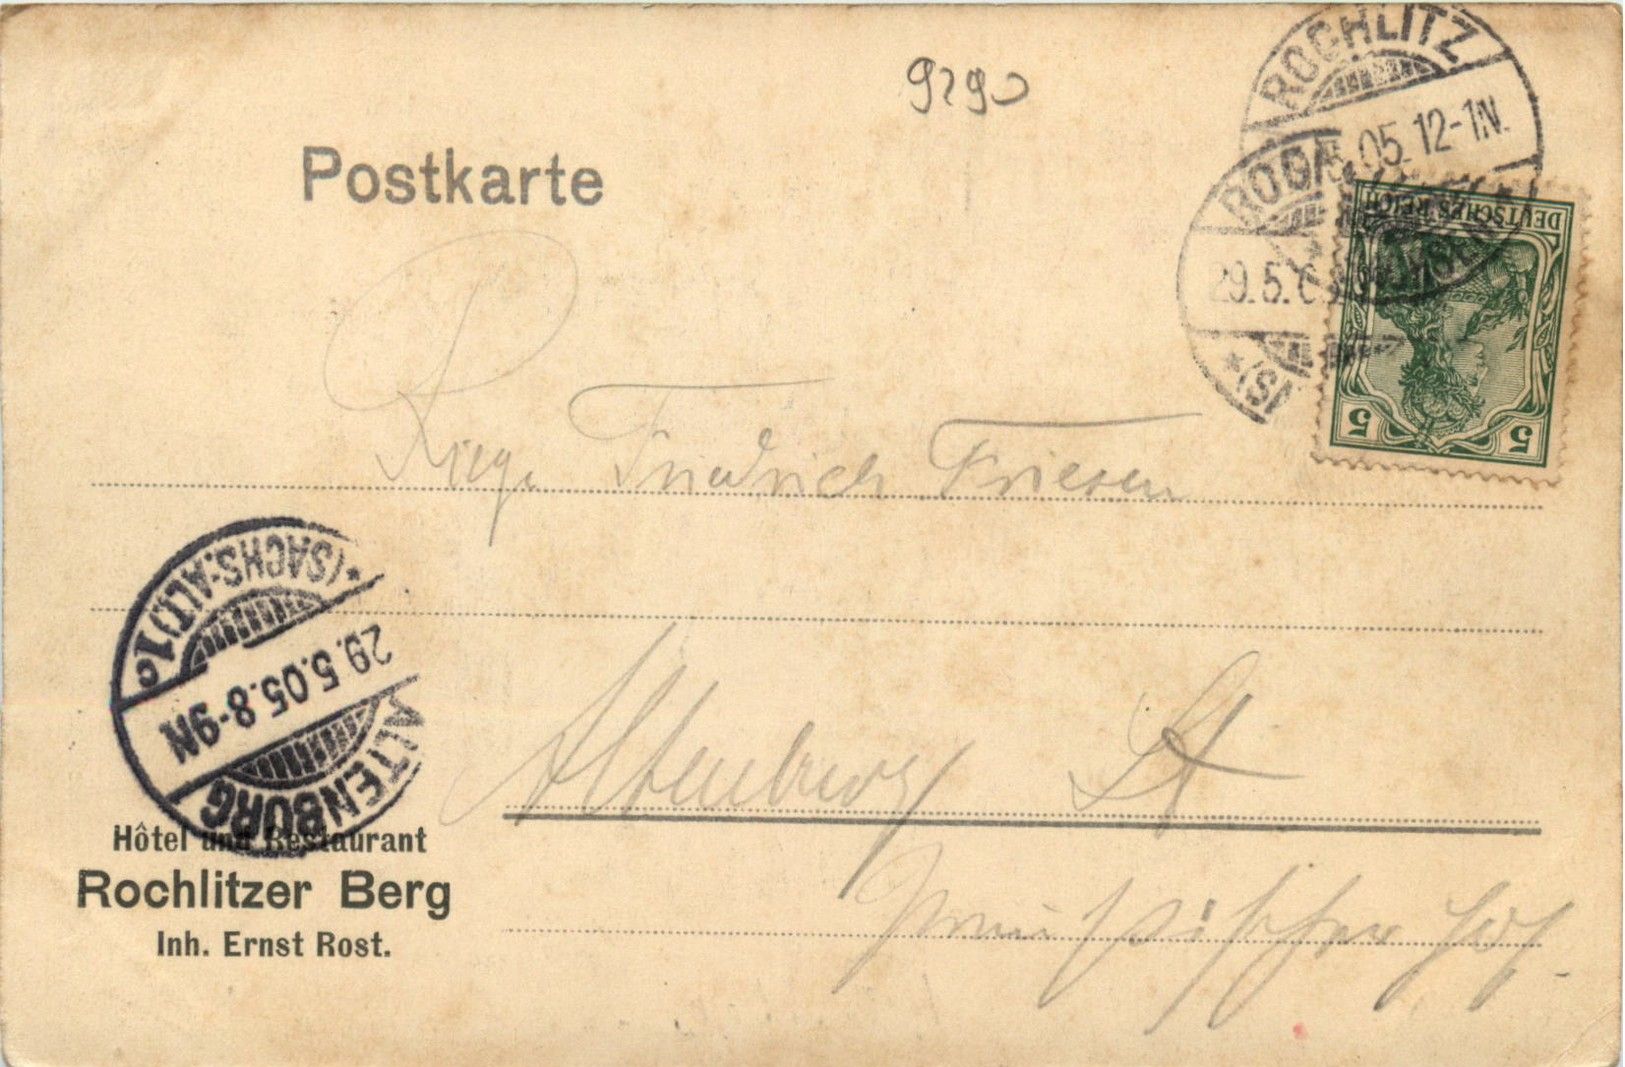 9290
Postkarte
ROCHLITZ
5.05.12-1N.
29.5.0
DEUTSCHES REICH
5 5
Riege Friedrich Friesen
Altenburg
Preußischer Hof.
(SACHS.-ALT.) 1c
29.5.05.8-9N
ALTENBURG
Hôtel und Restaurant
Rochlitzer Berg
Inh. Ernst Rost.